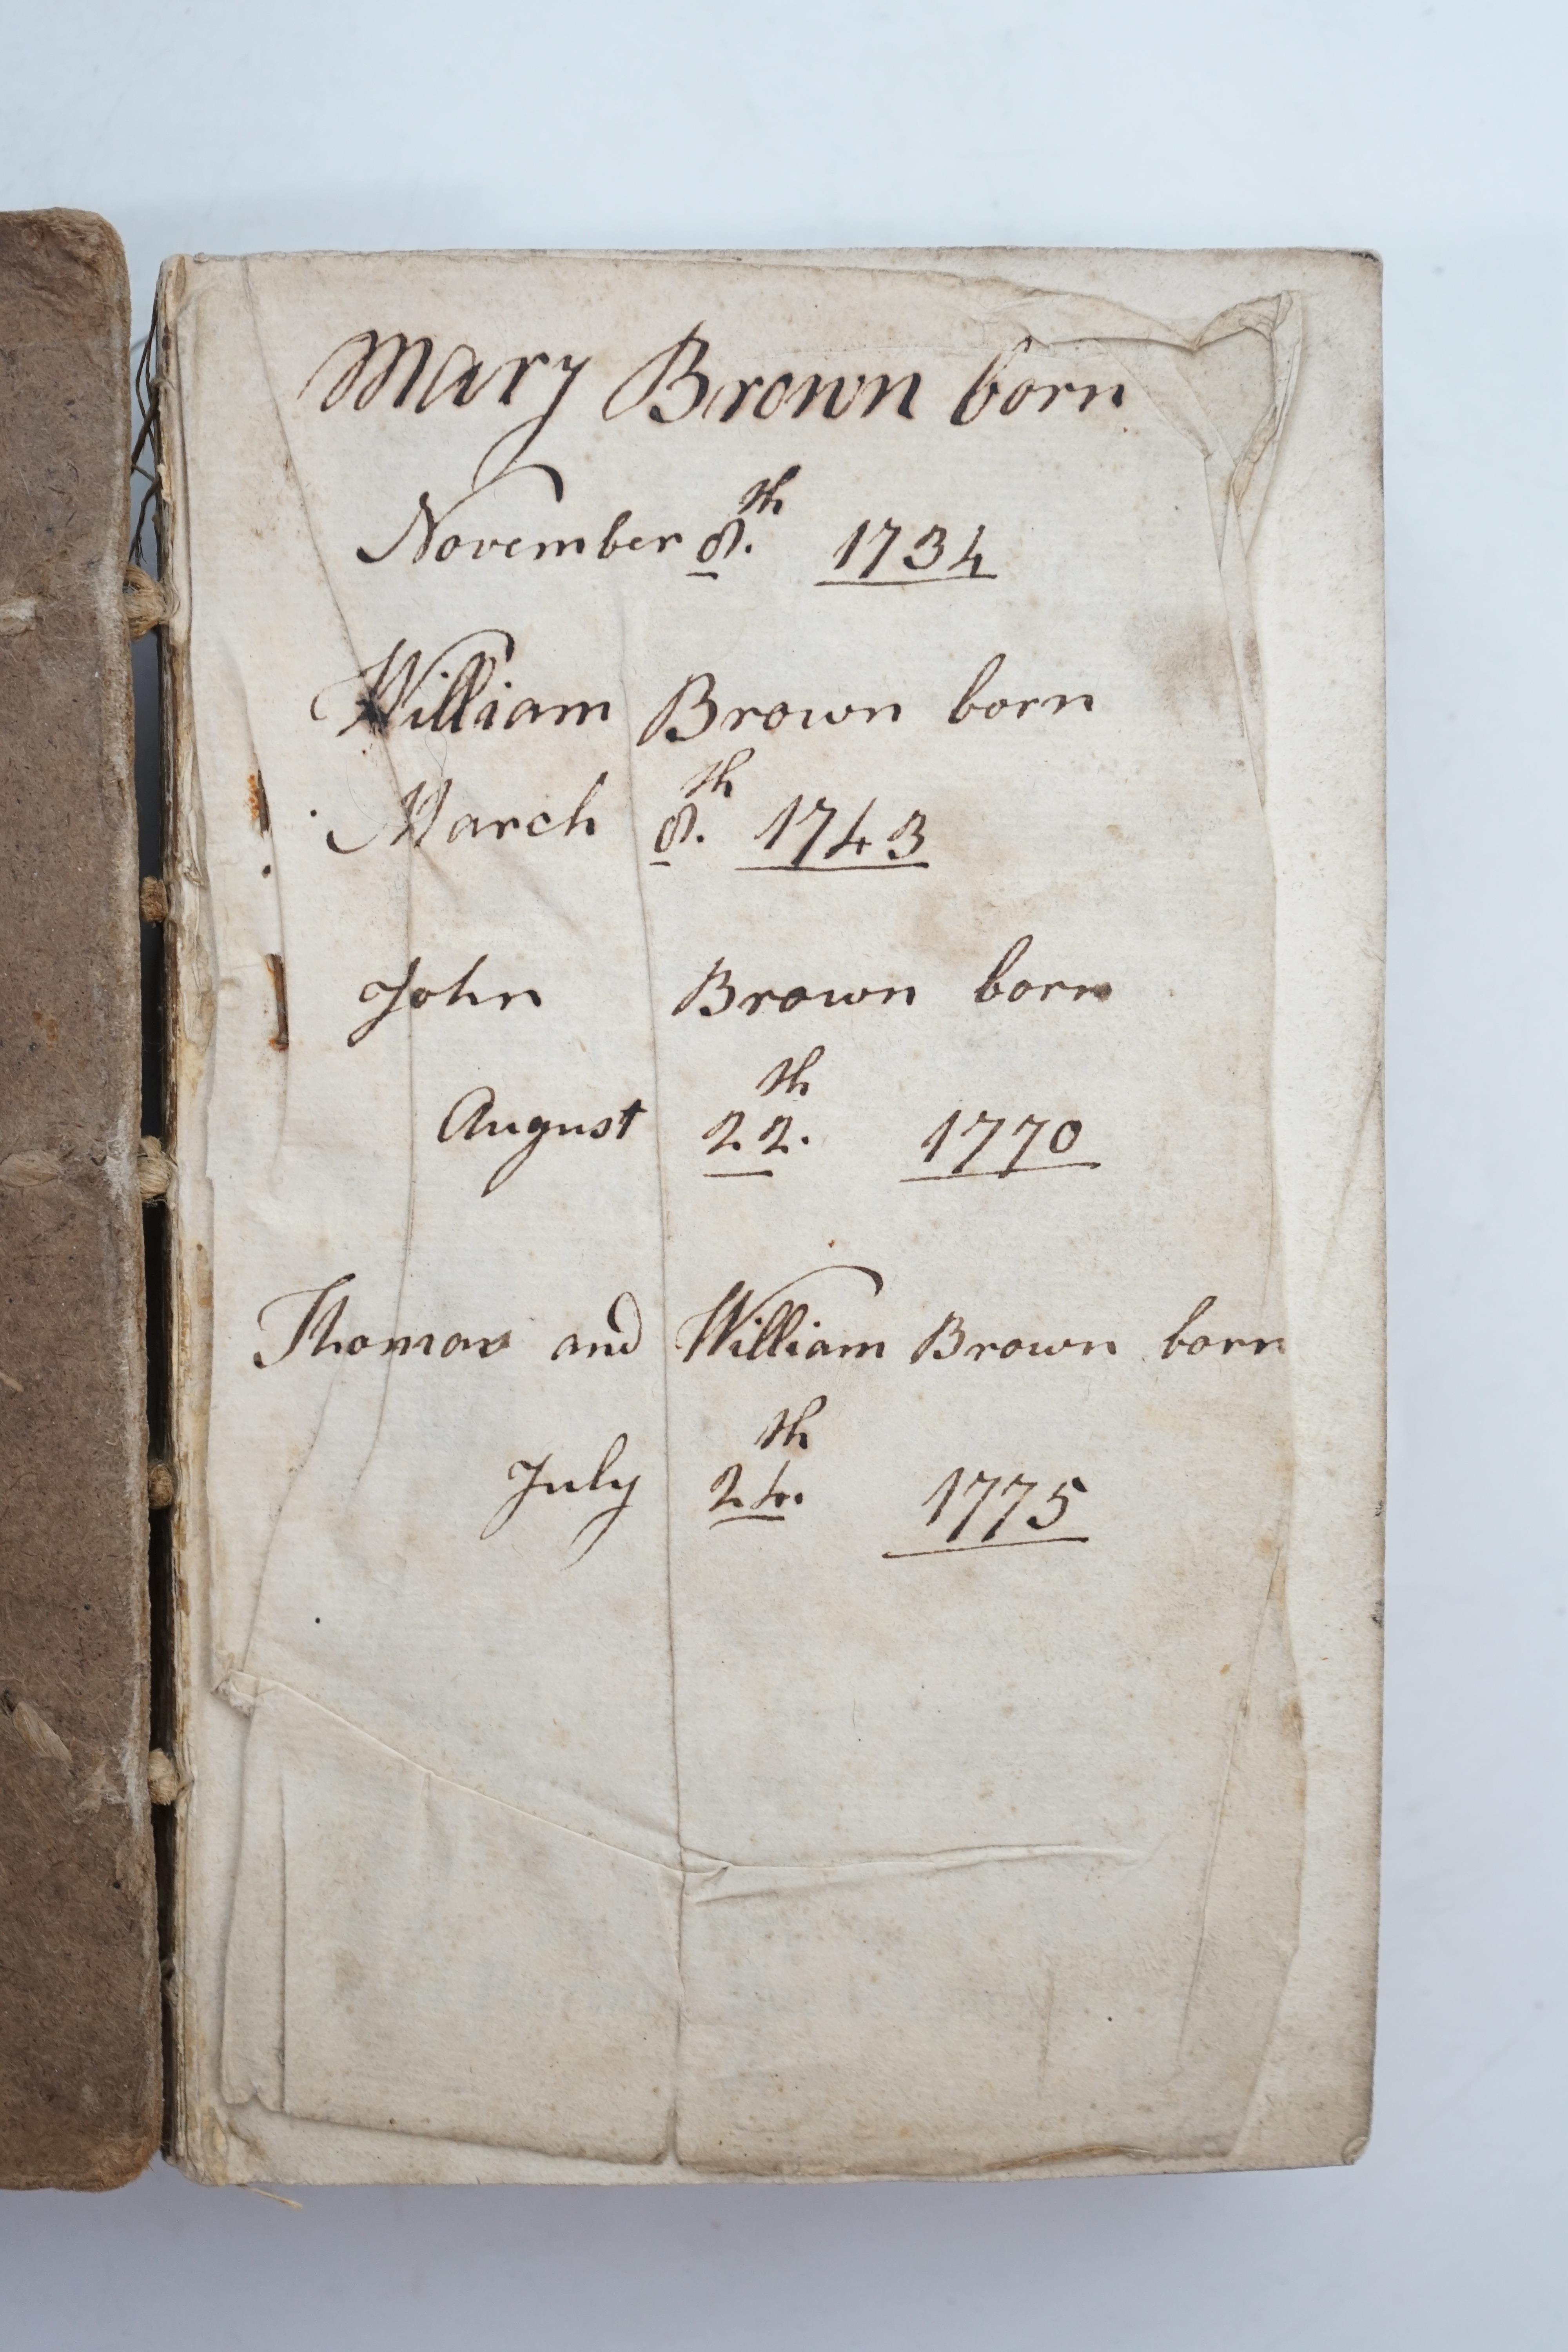 Mary Brown born
November 8.th 1734
William Brown born
March 8.th 1743
John Brown born
August 22.th 1770
Thomas and William Brown born
July 24.th 1775